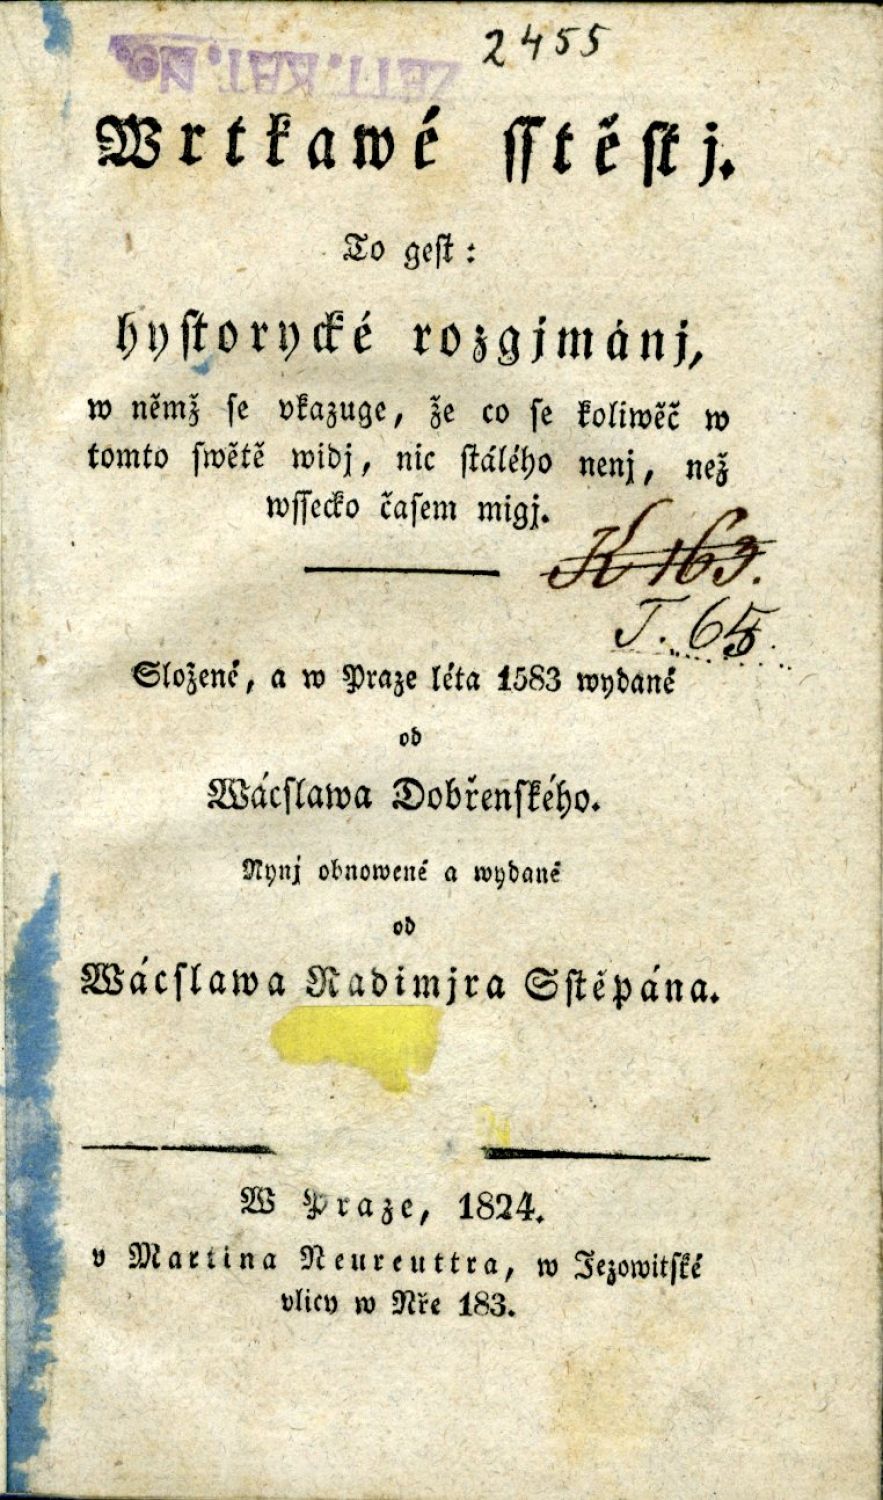 2455
ZETT. KAT. No.
Wrtkawé sstěstj.
To gest:
hystorycké rozgjmánj,
w němž se vkazuge, že co se koliwěč w
tomto swětě widj, nic stálého nenj, než
wssecko časem migj.
K 163.
T. 65
Složené, a w Praze léta 1583 wydané
od
Wácslawa Dobřenského.
Nynj obnowené a wydané
od
Wácslawa Radimjra Sstěpána.
W Praze, 1824.
v Martina Neureuttra, w Jezowitské
vlicy w Nře 183.